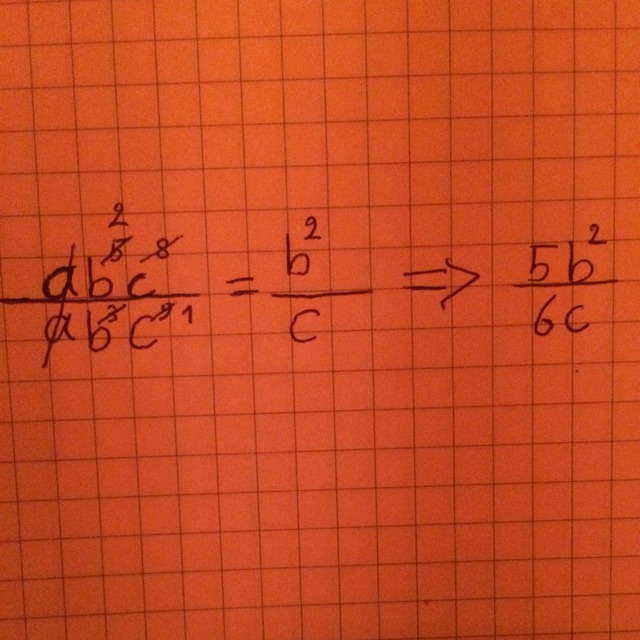 ab⁵²c⁸ / ab³c⁹¹ = b² / c => 5b² / 6c